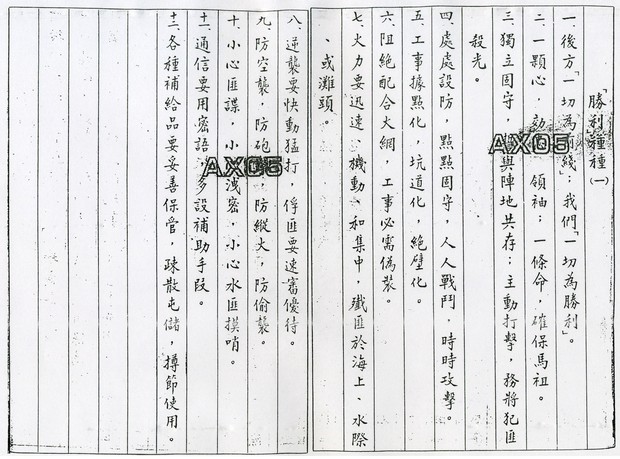 「勝利」種種(一)
一、後方「一切為前綫」，我們「一切為勝利」。
二、一顆心，効 領袖；一條命，確保馬祖。
三、獨立固守， 與陣地共存；主動打擊，務將犯匪
殺光。
四、處處設防，點點固守，人人戰鬥，時時攻擊。
五、工事據點化，坑道化，絕壁化。
六、阻絕配合火網，工事必需偽裝。
七、火力要迅速、機動、和集中，殲匪於海上、水際
、或灘頭。
八、逆襲要快動猛打，俘匪要速審優待。
九、防空襲，防砲 ，防縱火，防偷襲。
十、小心匪諜，小 洩密，小心水匪摸哨。
十一、通信要用密語，多設補助手段。
十二、各種補給品要妥善保管，疎散屯儲，撙節使用。
AX05
AX05